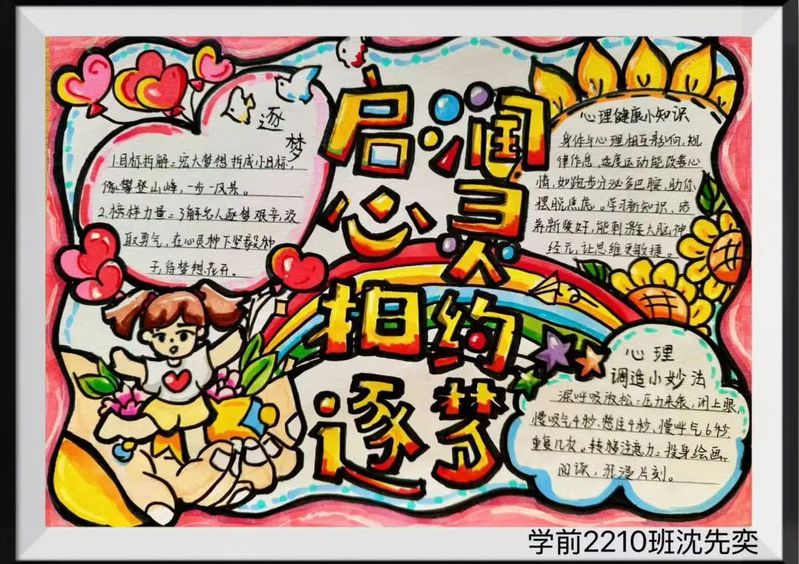 启润
心灵
相约
逐梦
逐
梦
1.目标拆解:宏大梦想拆成小目标,
像攀登山峰,一步一风景。
2.榜样力量:了解名人逐梦艰辛,汲
取勇气,在心灵种下坚毅种
子,待梦想花开。
心理健康小知识
身体与心理相互影响,规
律作息、适度运动能改善心
情,如跑步分泌多巴胺,助你
摆脱焦虑。学习新知识、培
养新爱好,能刺激大脑神
经元,让思维更敏捷。
心理
调适小妙法
深呼吸放松:压力来袭,闭上眼,
慢吸气4秒,憋住4秒,慢呼气6秒
重复几次。转移注意力:投身绘画、
阅读,沉浸片刻。
学前2210班沈先奕